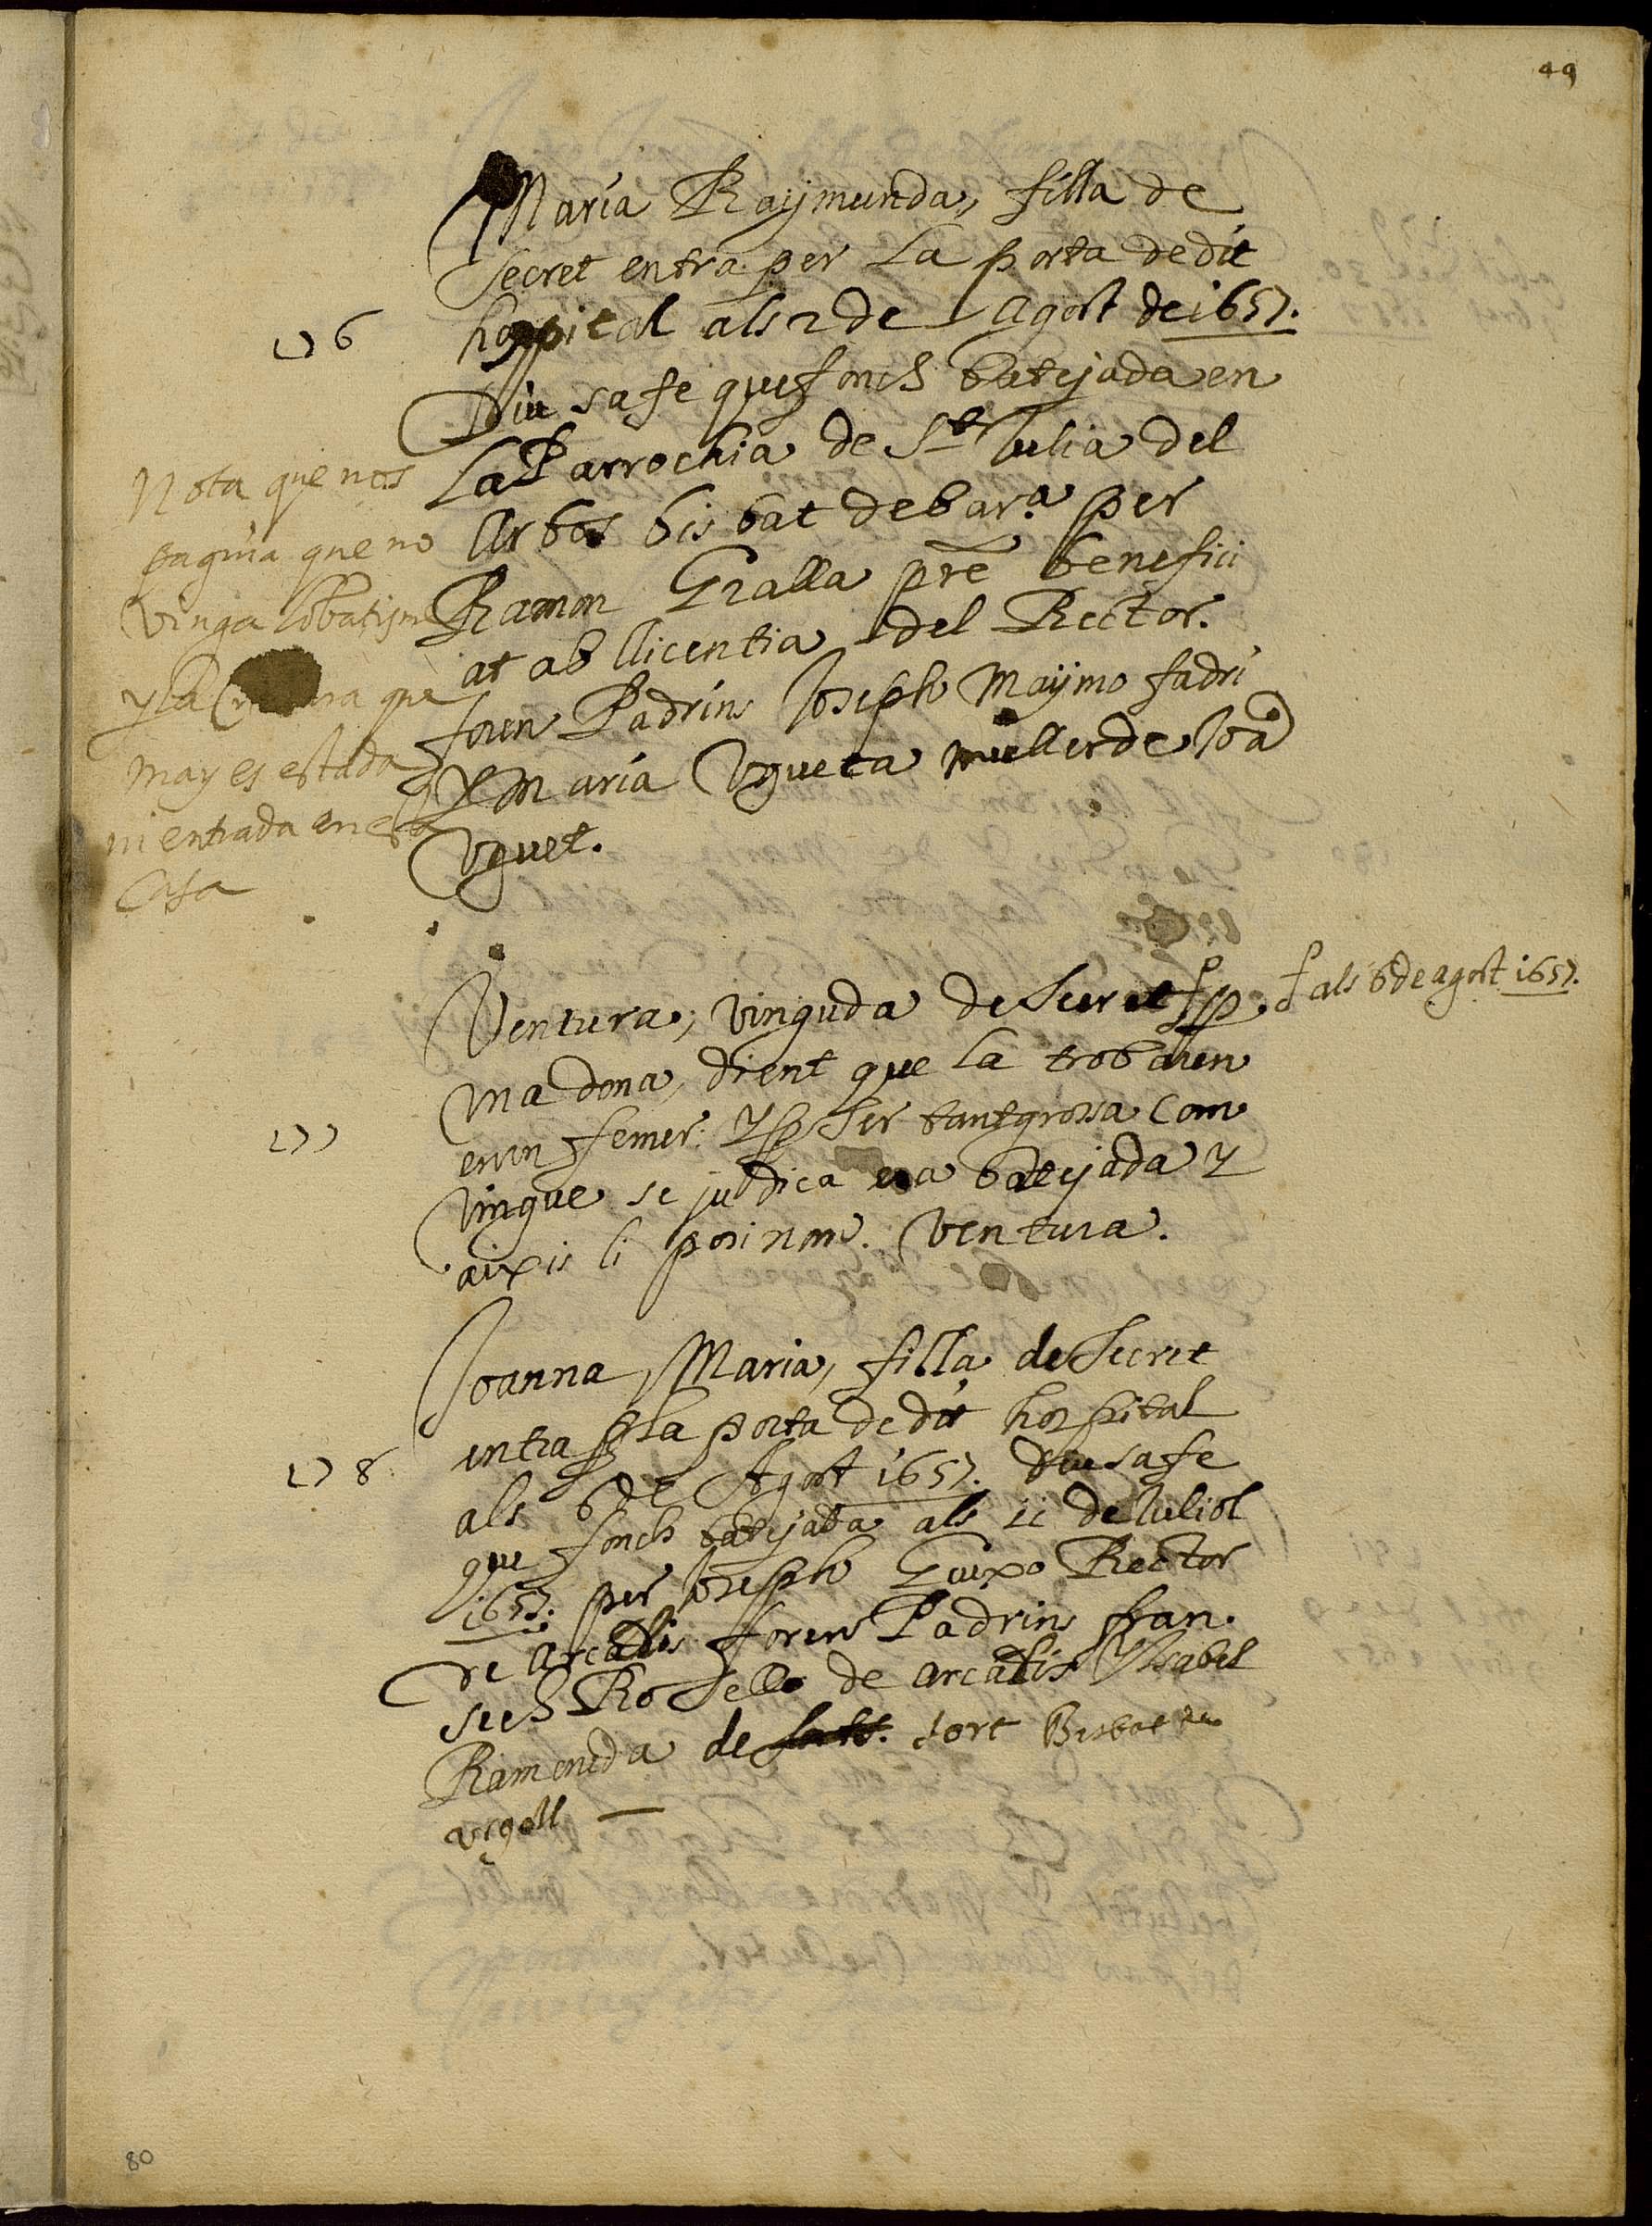 49
Maria Raymunda, filla de
secret entra per la porta de dit
hospital als 2 de Agost de 1657.
176
Diu sa fe que fonch batejada en
la Parrochia de St Iulia del
Arbos bisbat de Bar.a per
Ramon Gralla pre benefici
at ab llicentia del Rector.
foren Padrins Joseph Maymo fadri
y Maria Vgueta muller de Joa
Vguet.
Nota que nos
paguia que no
vinga lo batisme
y la que
may es estada
ni entrada en esta
Casa
Ventura, vinguda de Secret † p
† als 6 de agost 1657.
ma dona, dient que la trobaren
en un femer: y p ser tant grossa com
177
vingue se judica era batejada y
aixis li posi nom. Ventura.
Joanna Maria, filla de Secret
entra p la porta de dit hospital
178
als 6 de Agost 1657. diu sa fe
que fonch batejada als 11 de Juliol
1657. per Joseph Guixo Rector
de Arcalis foren Padrins fran
sech Rosello de arcalis y Isabel
Ramoneda de sort Bisbat de
urgell —
80